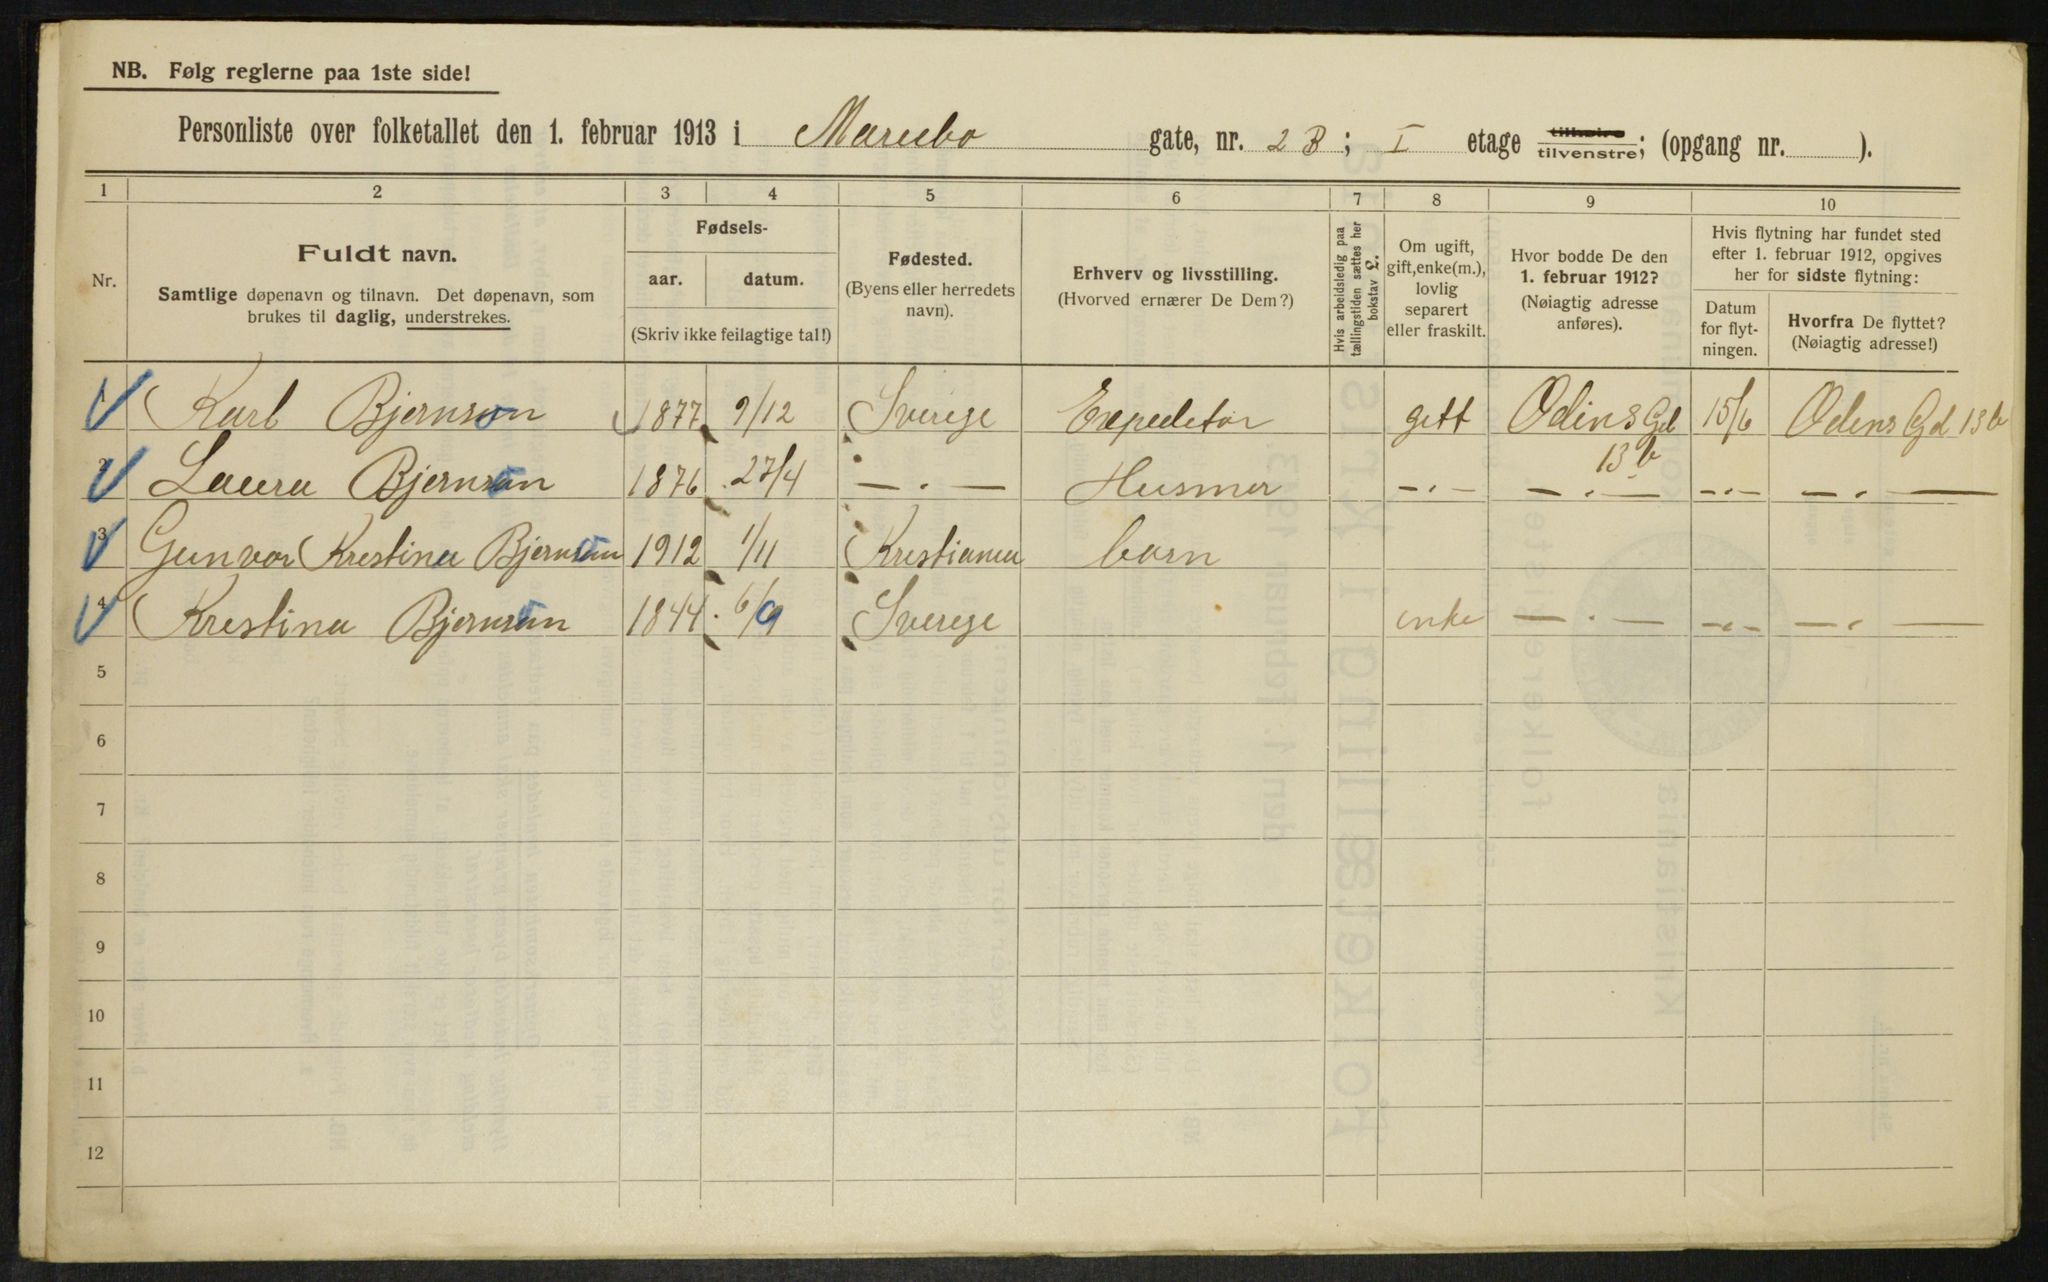 NB. Følg reglerne paa 1ste side!
Personliste over folketallet den 1. februar 1913 i Mariebo gate, nr. 2 B ; I etage tilhøire tilvenstre; (opgang nr. ).
1 2 3 4 5 6 7 8 9 10
Nr.
Fuldt navn.
Samtlige døpenavn og tilnavn. Det døpenavn, som
brukes til daglig, understrekes.
Fødsels-
aar. datum.
(Skriv ikke feilagtige tal!)
Fødested.
(Byens eller herredets
navn).
Erhverv og livsstilling.
(Hvorved ernærer De Dem?)
Hvis arbeidsledig paa
tællingstiden sættes her
bokstav £.
Om ugift,
gift, enke(m.),
lovlig
separert
eller fraskilt.
Hvor bodde De den
1. februar 1912?
(Nøiagtig adresse
anføres).
Hvis flytning har fundet sted
efter 1. februar 1912, opgives
her for sidste flytning:
Datum
for flyt-
ningen.
Hvorfra De flyttet?
(Nøiagtig adresse!)
1 Karl Bjernson 1877 9/12 Sverige Expeditør gift Odins Gd 15/6 Odins Gd 13b
13b
2 Laura Bjernson 1876 27/4 — . — Husmor - . - — . — - . - — . —
3 Gunvor Kristina Bjernson 1912 1/11 Kristiania barn
4 Kristina Bjernson 1844 6/9 Sverige enke — . — - . - — . —
5
6
7
8
9
10
11
12